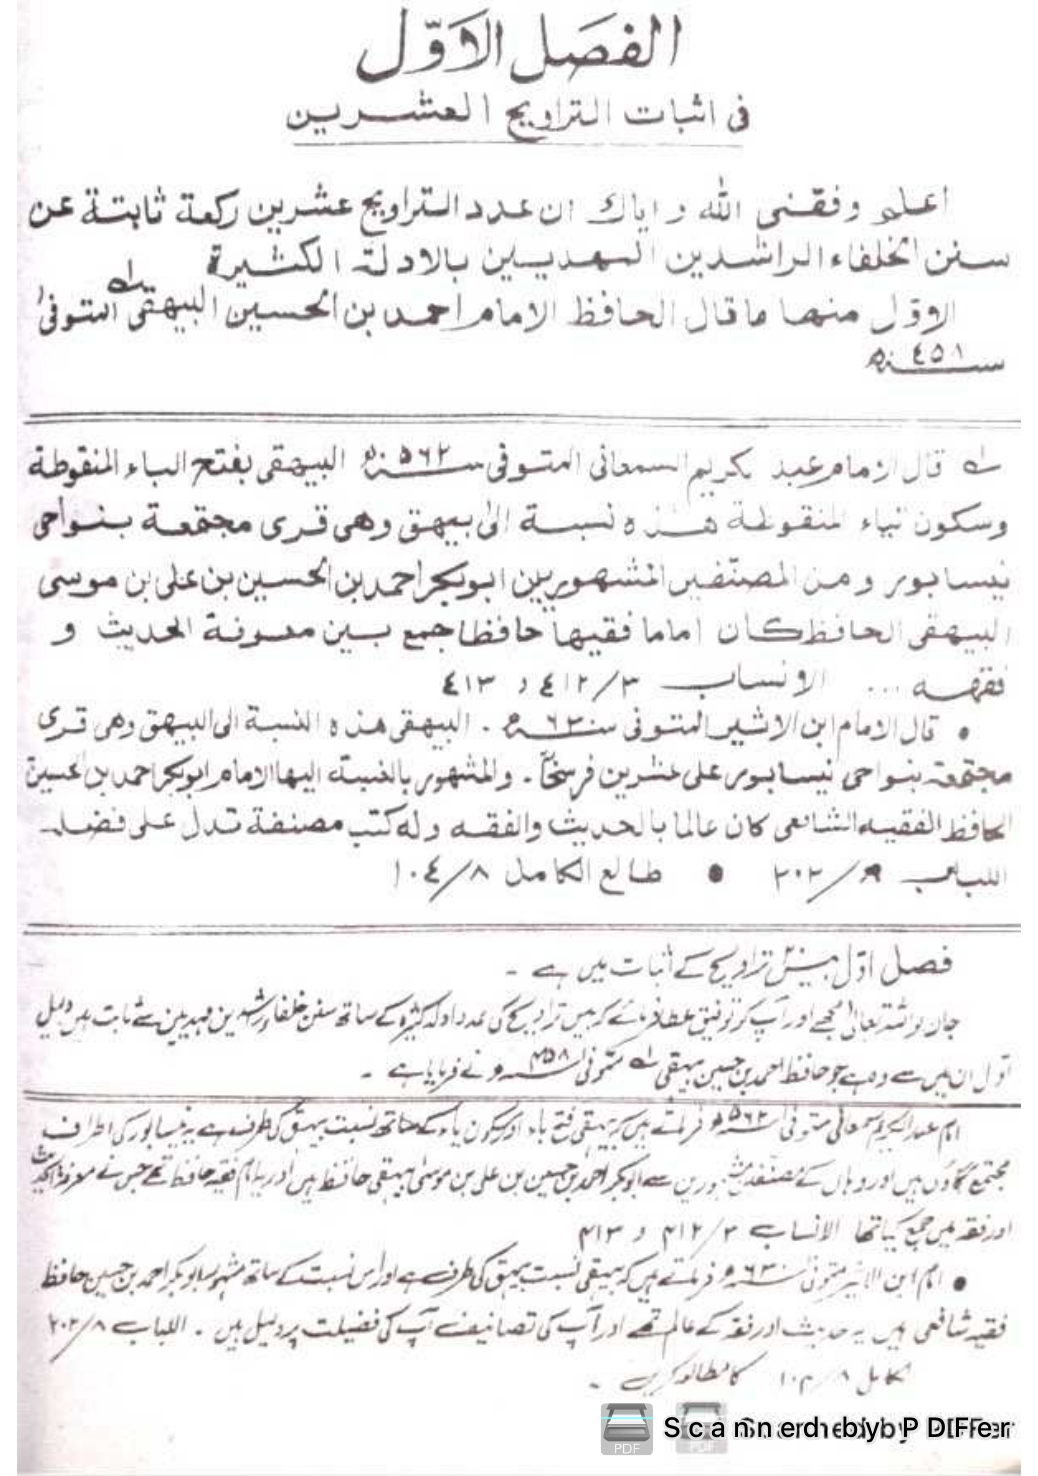 الفصل الاوّل
فی اثبات التراویح العشرین
اعلم وفقنی الله وایاك ان عدد التراویح عشرین رکعة ثابتة عن
سنن الخلفاء الراشدین المهدیین بالادلة الکثیرة
الاوّل منها ما قال الحافظ الامام احمد بن الحسین البیهقی المتوفی
سنه ٤٥٨
قال الامام عبد کریم السمعانی المتوفی سنه ٥٦٢ البیهقی بفتح الباء المنقوطة
وسکون الیاء المنقوطة هذه نسبة الی بیهق وهی قری مجتمعة بنواحی
نیسابور ومن المصنفین المشهورین ابوبکر احمد بن الحسین بن علی بن موسی
البیهقی الحافظ کان اماما فقیها حافظا جمع بین معرفة الحدیث و
فقهه ... الانساب ٤١٢/٣ و ٤١٣
• قال الامام ابن الاثیر المتوفی سنه ٦٣٠ . البیهقی هذه النسبة الی البیهق وهی قری
مجتمعة بنواحی نیسابور علی عشرین فرسخاً . والمشهور بالنسبة الیها الامام ابوبکر احمد بن الحسین
الحافظ الفقیه الشافعی کان عالما بالحدیث والفقه وله کتب مصنفة تدل علی فضله
اللباب ٢٠٢/ • طالع الکامل ١٠٤/٨
فصل اوّل بیس تراویح کے اثبات میں ہے ۔
جان لو اللہ تعالیٰ مجھے اور آپ کو توفیق عطا فرمائے کہ بیس تراویح کی عدد ادلہ کثیرہ کے ساتھ سنن خلفاء راشدین مہدیین سے ثابت ہیں دلیل
اوّل ان میں سے وہ ہے جو حافظ احمد بن حسین بیہقی متوفی ۴۵۸ نے فرمایا ہے ۔
امام عبد الکریم سمعانی متوفی ۵۶۲ فرماتے ہیں کہ بیہقی فتح باء اور سکون یاء کے ساتھ نسبت بیہق کی طرف ہے یہ نیسابور کی اطراف
مجتمع گاؤں ہیں اور وہاں کے مصنفین مشہورین سے ابوبکر احمد بن حسین بن علی بن موسیٰ بیہقی حافظ ہیں اور یہ امام فقیہ حافظ تھے جس نے معرفۃ الحدیث
اور فقہ میں جمع کیا تھا الانساب ۴۱۲/۳ و ۴۱۳
• امام ابن الاثیر متوفی ۶۳۰ فرماتے ہیں کہ بیہقی نسبت بیہق کی طرف ہے اور اس نسبت کے ساتھ مشہور ابوبکر احمد بن حسین حافظ
فقیہ شافعی ہیں یہ حدیث اور فقہ کے عالم تھے اور آپ کی تصانیف آپ کی فضیلت پر دلیل ہیں ۔ اللباب ۲۰۲/۸
کامل ۱۰۴/۸ کا مطالعہ کریں ۔
Scanned by PDFFer